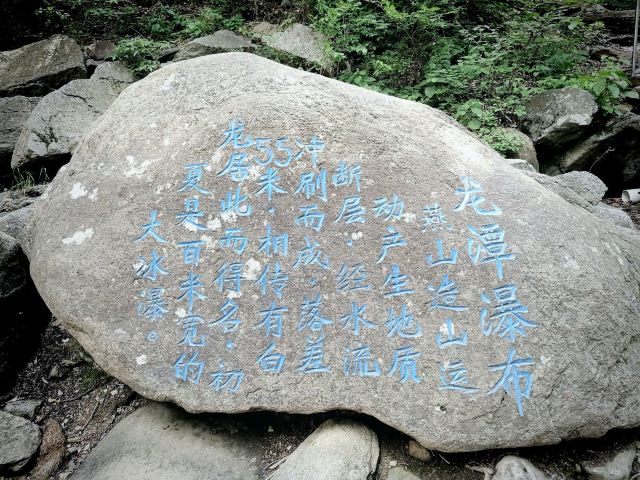 龙潭瀑布
燕山造山运
动产生地质
断层，经水流
冲刷而成，落差
55米，相传有白
龙居此而得名，初
夏是百米宽的
大冰瀑。